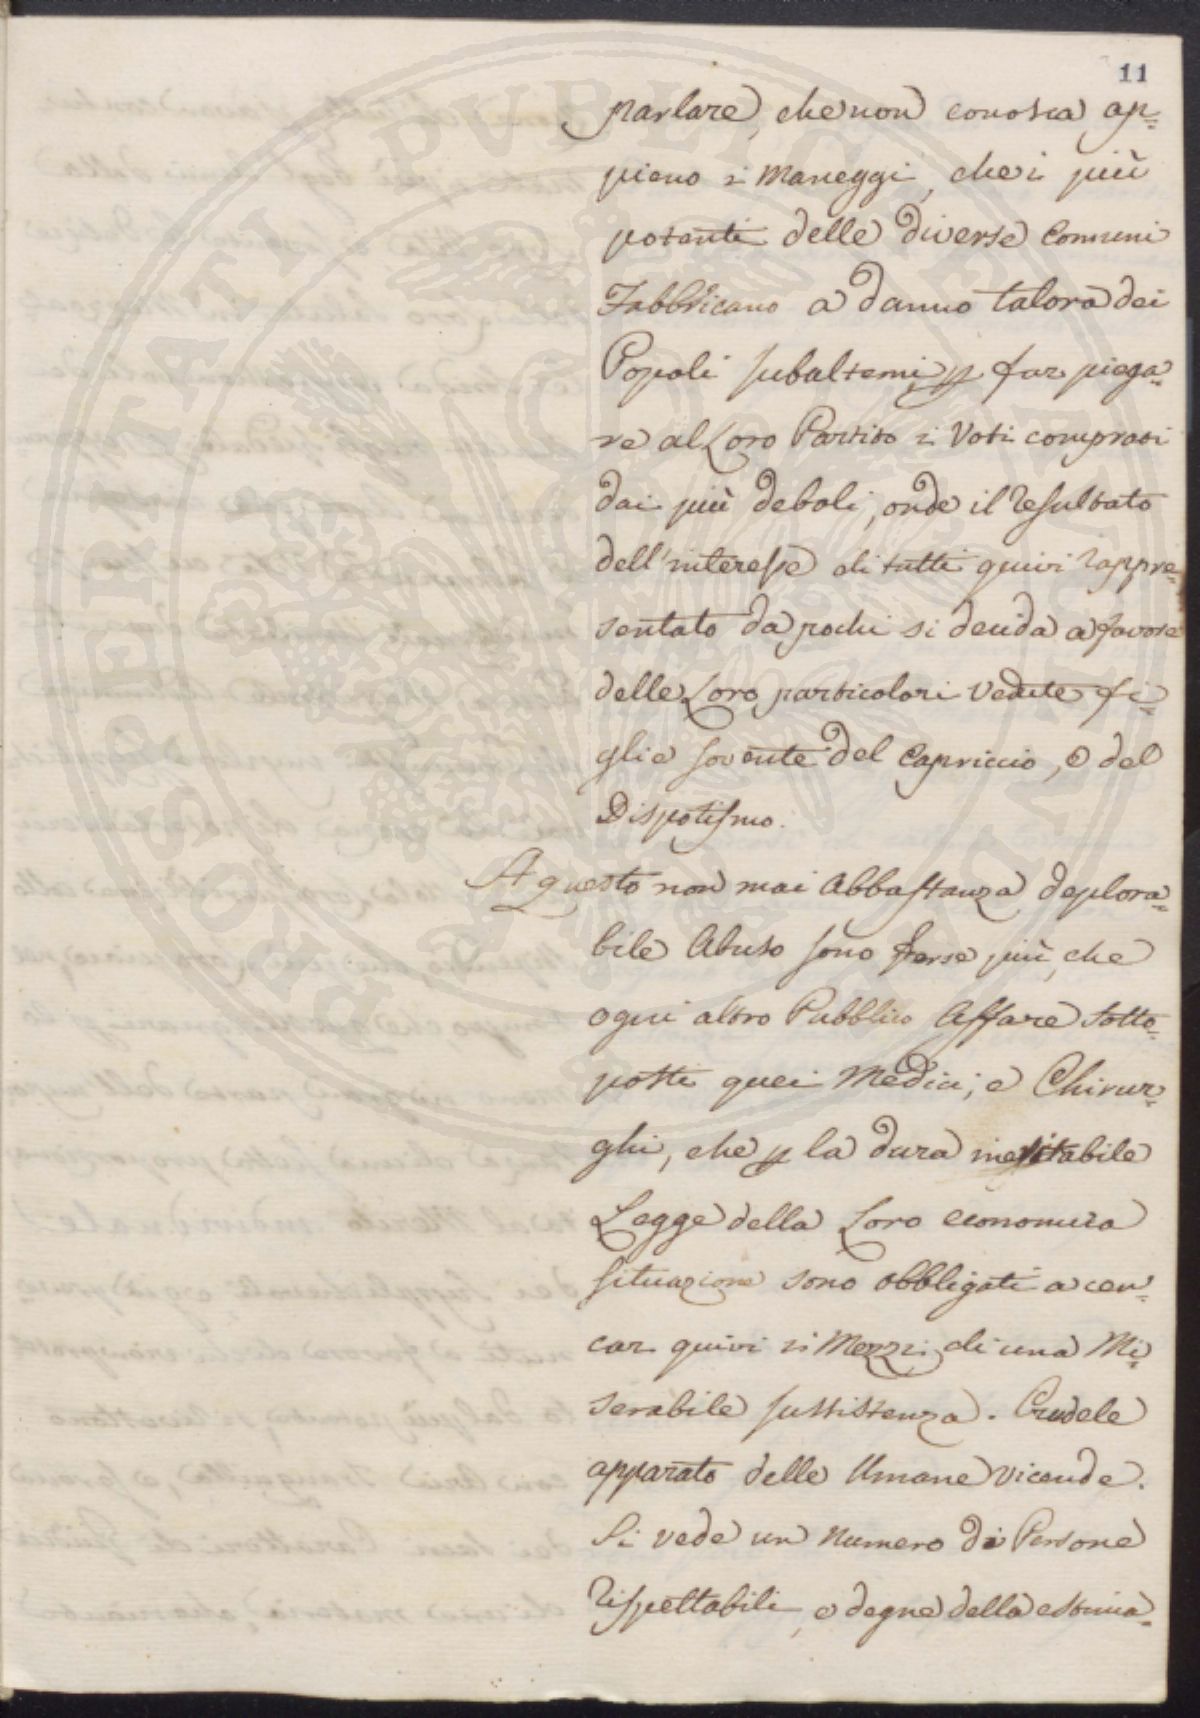 11
parlare, che non conosca ap=
pieno i Maneggi, che i più
potenti delle diverse Comuni
Fabbricano a danno talora dei
Popoli subalterni p far piega=
re al Loro Partito i Voti comprati
dai più deboli, onde il resultato
dell'interesse di tutti quivi rappre=
sentato da pochi si decida a favore
delle Loro particolari vedute fi=
glie sovente del Capriccio, e del
Dispotismo.
A questo non mai abbastanza deplora=
bile Abuso sono forse più, che
ogni altro Pubblico Affare sotto=
posti quei Medici, e Chirur=
ghi, che p la dura inevitabile
Legge della Loro economica
situazione sono obbligati a cer=
car quivi i Mezzi di una Mi=
serabile sussistenza. Crudele
apparato delle Umane vicende.
Si vede un numero di Persone
rispettabili, e degne della estima=
PROSPERITATI PVBLICAE